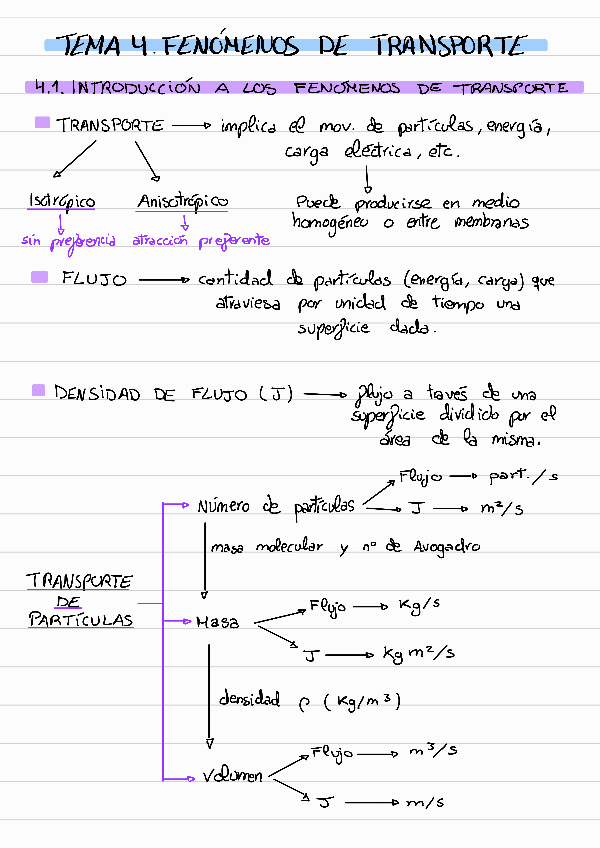 TEMA 4. FENÓMENOS DE TRANSPORTE
4.1. INTRODUCCIÓN A LOS FENÓMENOS DE TRANSPORTE
TRANSPORTE → implica el mov. de partículas, energía,
carga eléctrica, etc.
Isotrópico
Anisotrópico
Puede producirse en medio
homogéneo o entre membranas
sin preferencia
atracción preferente
FLUJO → cantidad de partículas (energía, carga) que
atraviesa por unidad de tiempo una
superficie dada.
DENSIDAD DE FLUJO (J) → flujo a través de una
superficie dividido por el
área de la misma.
Flujo → part./s
Número de partículas
J → m²/s
masa molecular y nº de Avogadro
TRANSPORTE
DE
PARTÍCULAS
Flujo → Kg/s
Masa
J → Kg m²/s
densidad ρ (Kg/m³)
Flujo → m³/s
Volumen
J → m/s